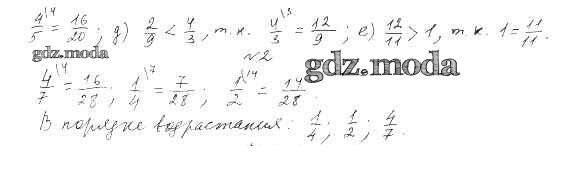 4/5 \4 = 16/20; д) 2/9 < 4/3, т.к. 4/3 \3 = 12/9; е) 12/11 > 1, т.к. 1 = 11/11.
gdz.moda
№2
gdz.moda
4/7 \4 = 16/28; 1/4 \7 = 7/28; 1/2 \14 = 14/28.
В порядке возрастания: 1/4; 1/2; 4/7.